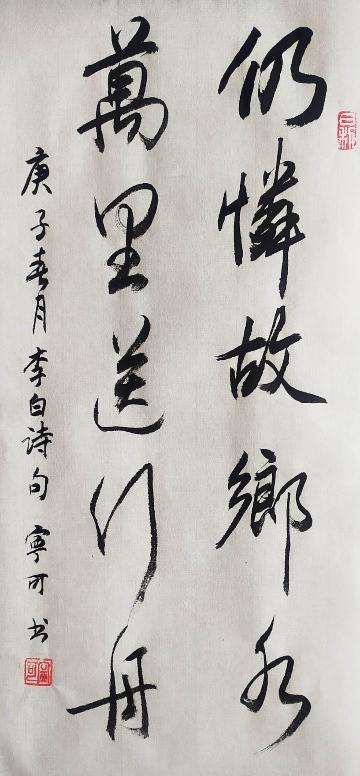 仍憐故鄉水
萬里送行舟
庚子春月李白诗句寧可书